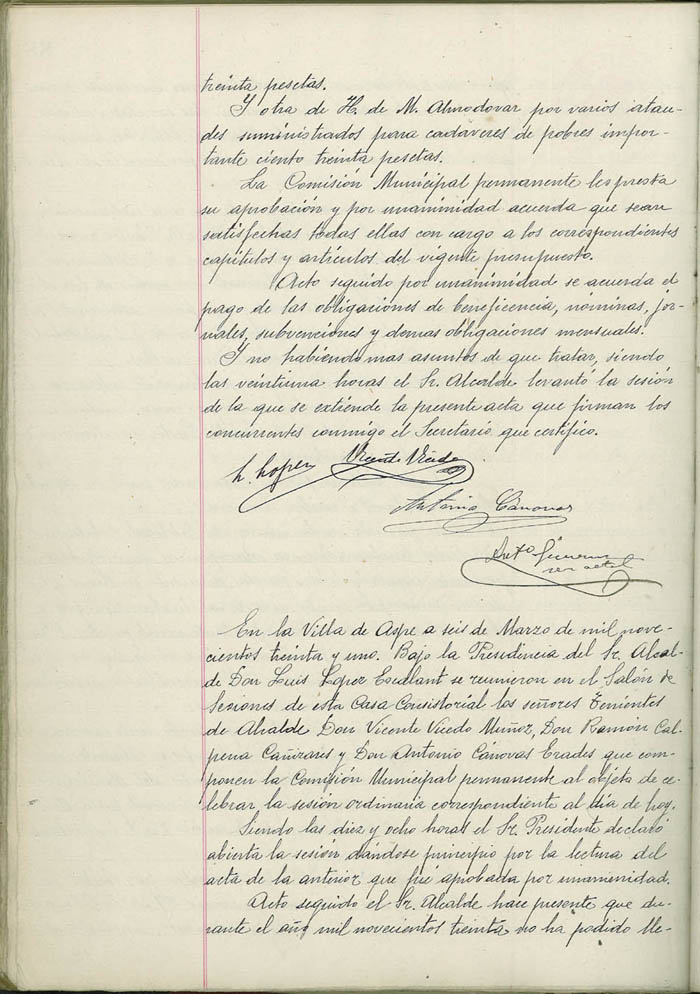 treinta pesetas.
Y otra de H. de M. Almodovar por varios atau-
des suministrados para cadaveres de pobres impor-
tante ciento treinta pesetas.
La Comisión Municipal permanente les presta
su aprobación y por unanimidad acuerda que sean
satisfechas todas ellas con cargo a los correspondientes
capitulos y articulos del vigente presupuesto.
Acto seguido por unanimidad se acuerda el
pago de las obligaciones de beneficencia, nóminas, jor-
nales, subvenciones y demas obligaciones mensuales.
Y no habiendo mas asuntos de que tratar, siendo
las veintiuna horas el Sr. Alcalde levantó la sesión
de la que se extiende la presente acta que firman los
concurrentes conmigo el Secretario que certifico.
L. Lopez Vicente Vicedo
Antonio Cánovas
En la Villa de Aspe a seis de Marzo de mil nove-
cientos treinta y uno. Bajo la Presidencia del Sr. Alcal-
de Don Luis López Escolant se reunieron en el Salón de
Sesiones de esta Casa Consistorial los señores Tenientes
de Alcalde Don Vicente Vicedo Muñoz, Don Ramón Cal-
pena Cañizares y Don Antonio Cánovas Erades que com-
ponen la Comisión Municipal permanente al objeto de ce-
lebrar la sesión ordinaria correspondiente al día de hoy.
Siendo las diez y ocho horas el Sr. Presidente declaró
abierta la sesión dándose principio por la lectura del
acta de la anterior que fué aprobada por unanimidad.
Acto seguido el Sr. Alcalde hace presente que du-
rante el año mil novecientos treinta no ha podido lle-